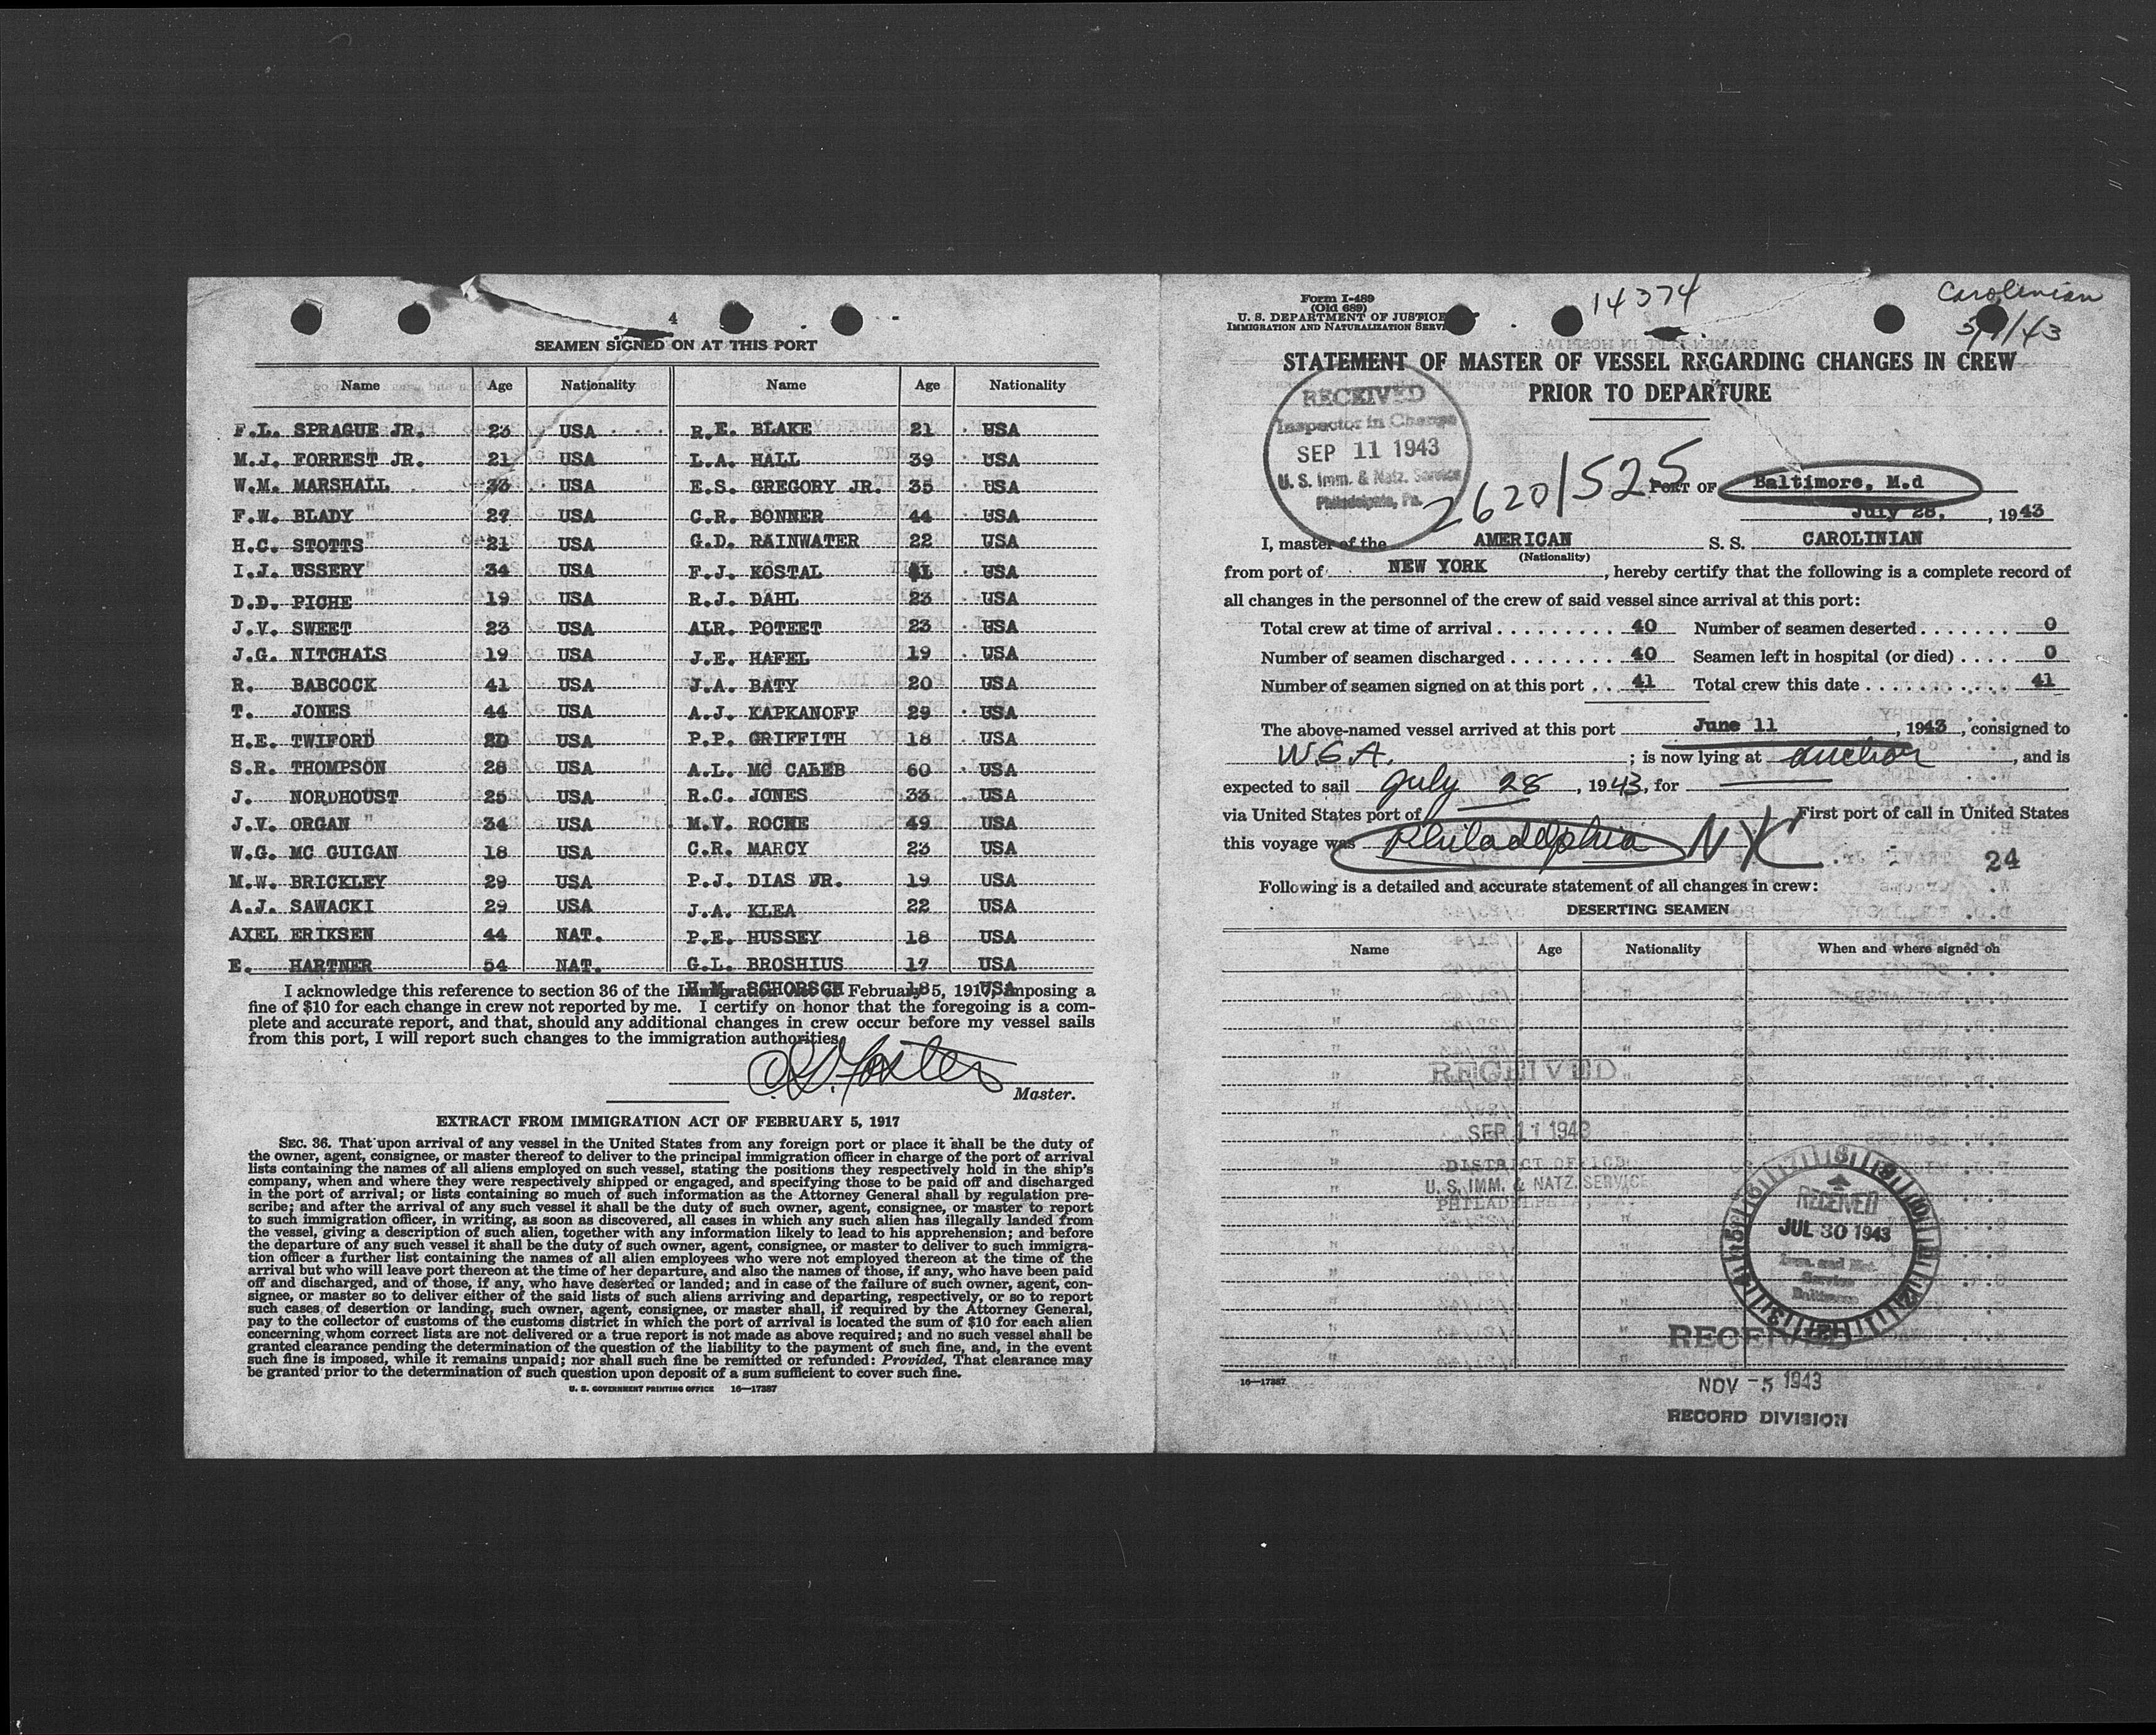 4
SEAMEN SIGNED ON AT THIS PORT
Name Age Nationality Name Age Nationality
F.L. SPRAGUE JR. 23 USA R.E. BLAKE 21 USA
M.J. FORREST JR. 21 USA L.A. HALL 39 USA
W.M. MARSHALL 33 USA E.S. GREGORY JR. 35 USA
F.W. BLADY 27 USA C.R. BONNER 44 USA
H.C. STOTTS 21 USA G.D. RAINWATER 22 USA
I.J. USSERY 34 USA F.J. KOSTAL USA
D.D. PICHE 19 USA R.J. DAHL 23 USA
J.V. SWEET 23 USA ALR. POTEET 23 USA
J.G. NITCHALS 19 USA J.E. HAFEL 19 USA
R. BABCOCK 41 USA J.A. BATY 20 USA
T. JONES 44 USA A.J. KAPKANOFF 29 USA
H.E. TWIFORD 20 USA P.P. GRIFFITH 18 USA
S.R. THOMPSON 28 USA A.L. MC CALEB 60 USA
J. NORDHOUST 25 USA R.C. JONES 33 USA
J.V. ORGAN 34 USA M.V. ROCHE 49 USA
W.G. MC GUIGAN 18 USA C.R. MARCY 23 USA
M.W. BRICKLEY 29 USA P.J. DIAS JR. 19 USA
A.J. SAWACKI 29 USA J.A. KLEA 22 USA
AXEL ERIKSEN 44 NAT. P.E. HUSSEY 18 USA
E. HARTNER 54 NAT. G.L. BROSHIUS 17 USA
H.M. SCHORSCH 18 USA
I acknowledge this reference to section 36 of the Immigration Act of February 5, 1917, imposing a
fine of $10 for each change in crew not reported by me. I certify on honor that the foregoing is a com-
plete and accurate report, and that, should any additional changes in crew occur before my vessel sails
from this port, I will report such changes to the immigration authorities.
Foster
Master.
EXTRACT FROM IMMIGRATION ACT OF FEBRUARY 5, 1917
SEC. 36. That upon arrival of any vessel in the United States from any foreign port or place it shall be the duty of
the owner, agent, consignee, or master thereof to deliver to the principal immigration officer in charge of the port of arrival
lists containing the names of all aliens employed on such vessel, stating the positions they respectively hold in the ship's
company, when and where they were respectively shipped or engaged, and specifying those to be paid off and discharged
in the port of arrival; or lists containing so much of such information as the Attorney General shall by regulation pre-
scribe; and after the arrival of any such vessel it shall be the duty of such owner, agent, consignee, or master to report
to such immigration officer, in writing, as soon as discovered, all cases in which any such alien has illegally landed from
the vessel, giving a description of such alien, together with any information likely to lead to his apprehension; and before
the departure of any such vessel it shall be the duty of such owner, agent, consignee, or master to deliver to such immigra-
tion officer a further list containing the names of all alien employees who were not employed thereon at the time of the
arrival but who will leave port thereon at the time of her departure, and also the names of those, if any, who have been paid
off and discharged, and of those, if any, who have deserted or landed; and in case of the failure of such owner, agent, con-
signee, or master so to deliver either of the said lists of such aliens arriving and departing, respectively, or so to report
such cases of desertion or landing, such owner, agent, consignee, or master shall, if required by the Attorney General,
pay to the collector of customs of the customs district in which the port of arrival is located the sum of $10 for each alien
concerning whom correct lists are not delivered or a true report is not made as above required; and no such vessel shall be
granted clearance pending the determination of the question of the liability to the payment of such fine, and, in the event
such fine is imposed, while it remains unpaid; nor shall such fine be remitted or refunded: Provided, That clearance may
be granted prior to the determination of such question upon deposit of a sum sufficient to cover such fine.
U. S. GOVERNMENT PRINTING OFFICE 16—17387
Form I-489
(Old 689)
U. S. DEPARTMENT OF JUSTICE
IMMIGRATION AND NATURALIZATION SERVICE
14374
Carolinian
STATEMENT OF MASTER OF VESSEL REGARDING CHANGES IN CREW
PRIOR TO DEPARTURE
RECEIVED
Inspector in Charge
SEP 11 1943
U. S. Imm. & Natz. Service
Philadelphia, Pa.
2620/525
PORT OF Baltimore, M.d
July 28, 1943
I, master of the AMERICAN S. S. CAROLINIAN
(Nationality)
from port of NEW YORK, hereby certify that the following is a complete record of
all changes in the personnel of the crew of said vessel since arrival at this port:
Total crew at time of arrival 40 Number of seamen deserted 0
Number of seamen discharged 40 Seamen left in hospital (or died) 0
Number of seamen signed on at this port 41 Total crew this date 41
The above-named vessel arrived at this port June 11, 1943, consigned to
W.S.A.; is now lying at anchor, and is
expected to sail July 28, 1943, for
via United States port of First port of call in United States
this voyage was Philadelphia NYC
24
Following is a detailed and accurate statement of all changes in crew:
DESERTING SEAMEN
Name Age Nationality When and where signed on
RECEIVED
SEP 11 1943
DISTRICT OFFICE
U. S. IMM. & NATZ. SERVICE
PHILADELPHIA, PA.
RECEIVED
JUL 30 1943
Imm. and Nat.
Service
Baltimore
RECEIVED
NOV -5 1943
RECORD DIVISION
16—17387